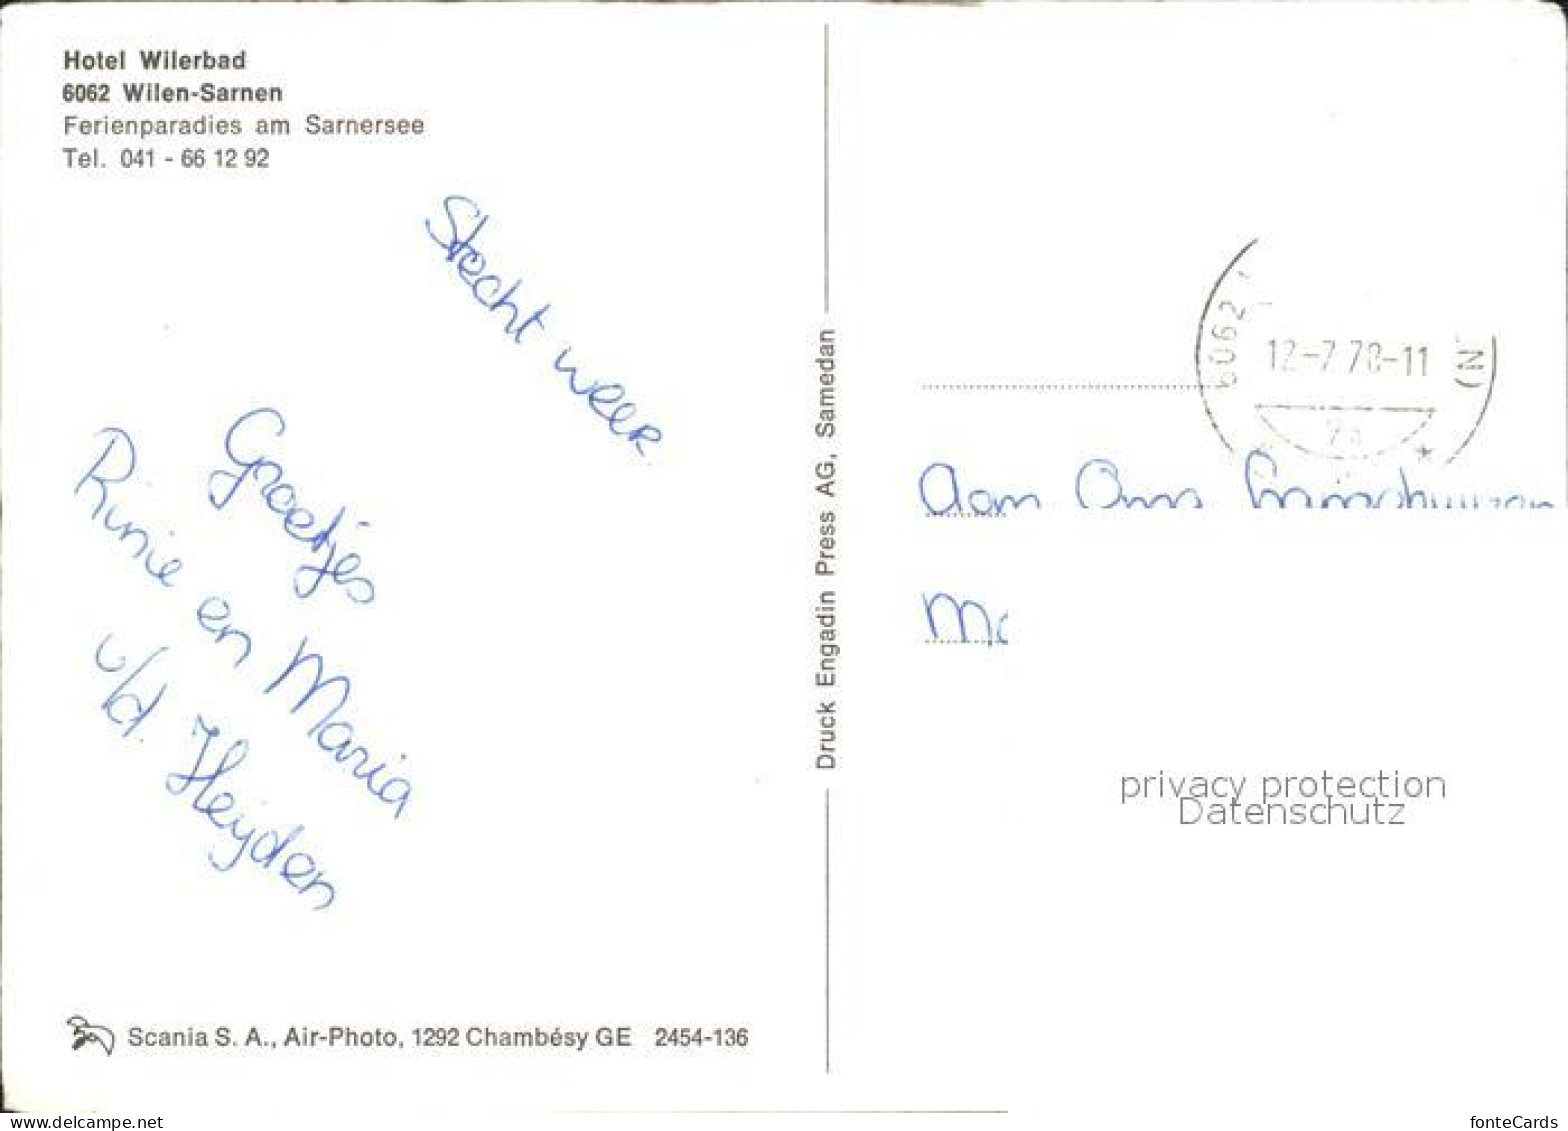 Hotel Wilerbad
6062 Wilen-Sarnen
Ferienparadies am Sarnersee
Tel. 041 - 66 12 92
Slecht weer.
Groetjes
Rinie en Maria
v/d. Heyden
Scania S. A., Air-Photo, 1292 Chambésy GE 2454-136
Druck Engadin Press AG, Samedan
6062
12-7.78-11
Aan
privacy protection
Datenschutz
delcampe.net
fonteCards